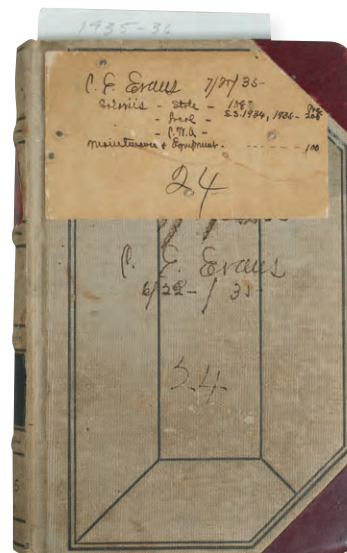 1935-36
C. E. Evans 7/27/35-
Salaries - State -
- Local - S.S. 1934, 1935 -
- C.W.A -
Maintenance & Equipment - 100
24
C. E. Evans
6/22-/35-